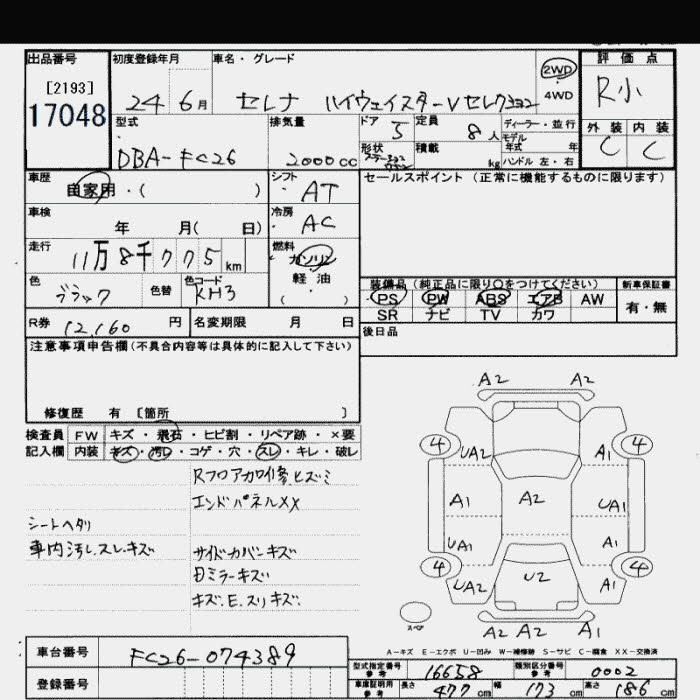 出品番号 初度登録年月 車名・グレード 2WD 4WD 評価点
[2193]
17048
24年6月 セレナ ハイウェイスターVセレクション R小
型式 排気量 ドア 定員 ディーラー・並行 外装 内装
DBA-FC26 2000cc 5 8人 モデル年式 年 C C
形状 積載 kg ハンドル 左・右
車歴 シフト セールスポイント(正常に機能するものに限ります)
自家用・( ) AT
車検 冷房
年 月( 日) AC
走行 燃料
11万8千775km ガソリン
軽油
・( )
色 色替 色コード 装備品(純正品に限り〇をつけてください) 新車保証書
ブラック KH3 PS PW ABS エアB AW 有・無
SR ナビ TV カワ
R券 12,160円 名変期限 月 日 後日品
注意事項申告欄(不具合内容等は具体的に記入して下さい)
修復歴 有 [箇所 ]
検査員 FW キズ・飛石・ヒビ割・リペア跡・×要
記入欄 内装 キズ・汚れ・コゲ・穴・スレ・キレ・破レ
エンドパネルXX
シートヘタリ
車内汚レ.スレ.キズ
キズ.E.スリキズ.
A2 A2
4 4
UA2 A1
A1 A2 UA1
UA1 A1
4 4
UA2 U2 A1
A2 A2 A2
スペア
A-キズ E-エクボ U-凹み W-補修跡 S-サビ C-腐食 XX-交換済
車台番号 FC26-074389
登録番号
型式指定番号 参考 16658 類別区分番号 参考 0002
車庫証明用 参考 長さ 477cm 幅 173cm 高さ 186cm